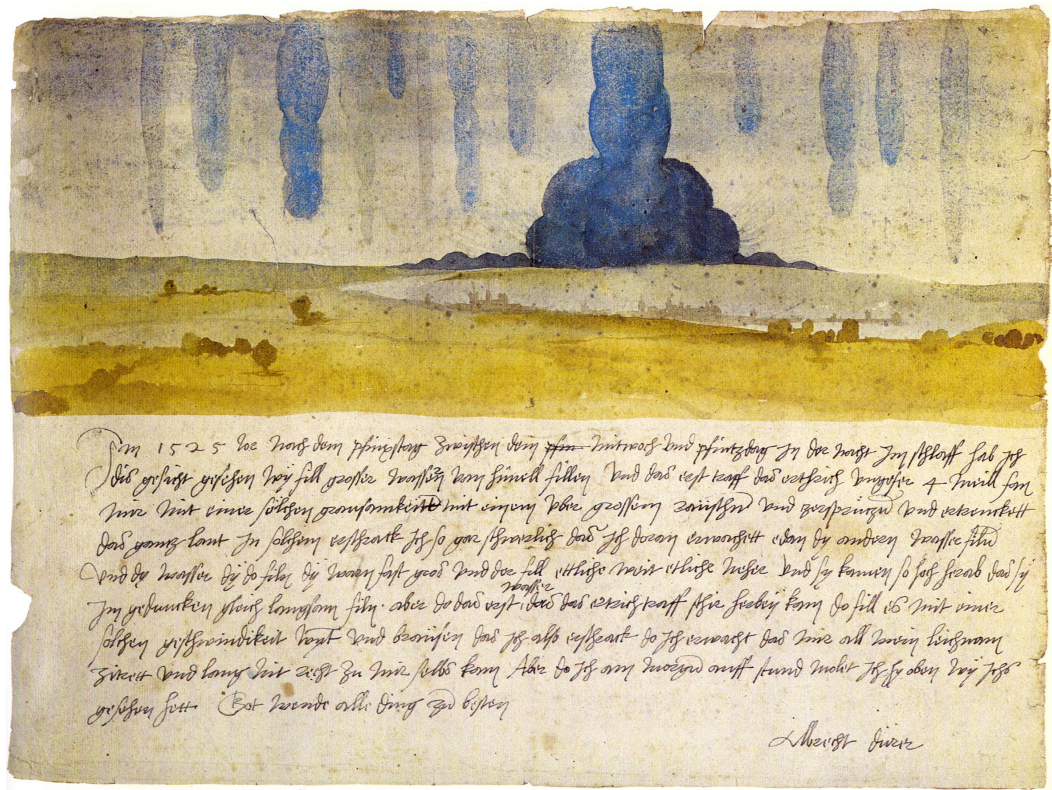 Im 1525 Jor noch dem pfinxstag zwischen dem pfin Mitwoch und pfintzdag in der nacht im schlaff hab ich
dis gesicht gesehen wy fill grosser wassern vom himell fillen Und das erst traff das erthrich ungefer 4 meill fan
mir mit einer solchen grausamkeitt mit einem uber grossem raüschn und zersprützn und ertrenckett
das gantz lant In solchem erschrack ich so gar schwerlich das ich doran erwachett edan dy andern wasser filn
Und dy wasser dy do filn dy warn fast gros und der fill ettliche weit etliche neher und sy kamen so hoch herab das sy
im gedancken gleich langsam filn. aber do das erst wasser das das ertrich traff schir herbey kam do fill es mit einer
solchen geschwindikeit wynt und braüsen das ich also erschrack do ich erwacht das mir all mein leichnam
zitrett und lang nit recht zu mir selbs kam Aber do ich am morgn auff stund molet ich hy oben wy ichs
gesehen hett. Got wende alle ding zu besten
Albrecht dürer